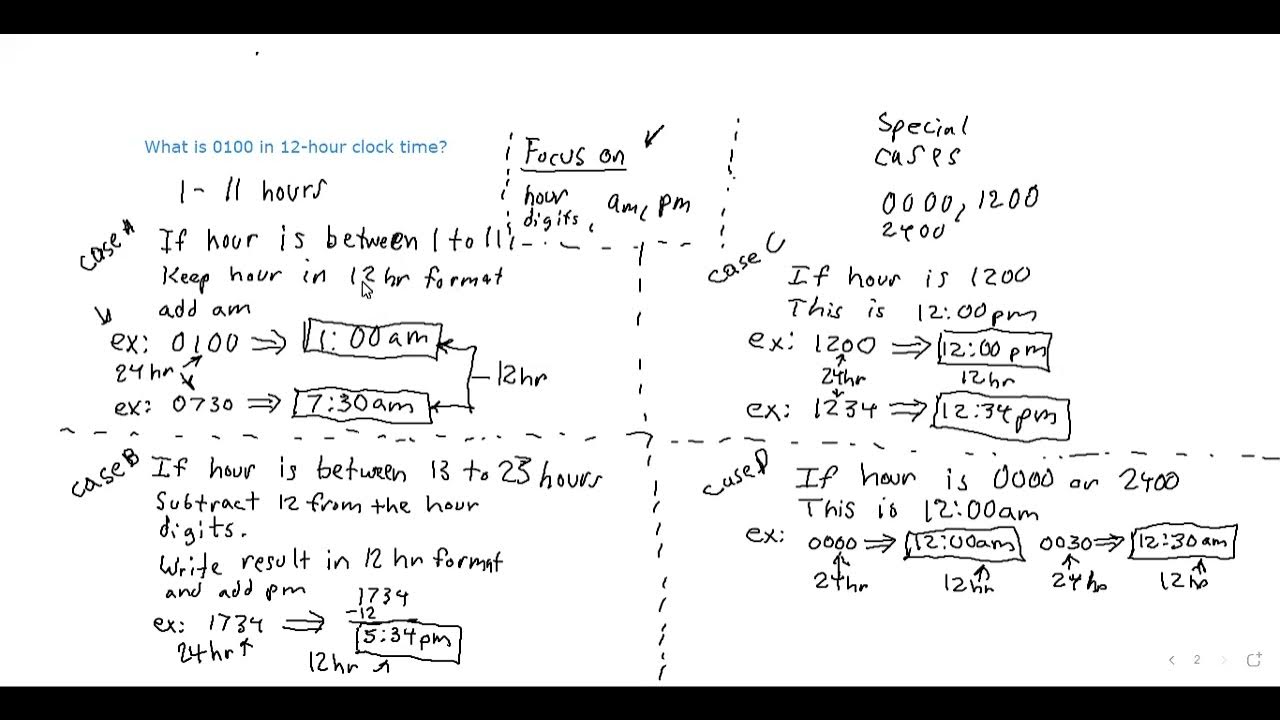 What is 0100 in 12-hour clock time?
1 - 11 hours
Case A
If hour is between 1 to 11
Keep hour in 12 hr format
add am
ex: 0100 ⇒ 1:00 am
24 hr
12hr
ex: 0730 ⇒ 7:30am
Focus on
hour digits, am, pm
Special cases
0000, 1200
2400
Case B
If hour is between 13 to 23 hours
Subtract 12 from the hour
digits.
Write result in 12 hr format
and add pm
1734
-12
ex: 1734 ⇒ 5:34pm
24hr
12hr
Case C
If hour is 1200
This is 12:00pm
ex: 1200 ⇒ 12:00 pm
24hr 12hr
ex: 1234 ⇒ 12:34pm
Case D
If hour is 0000 or 2400
This is 12:00am
ex: 0000 ⇒ 12:00am 0030 ⇒ 12:30am
24hr 12hr 24hr 12hr
2